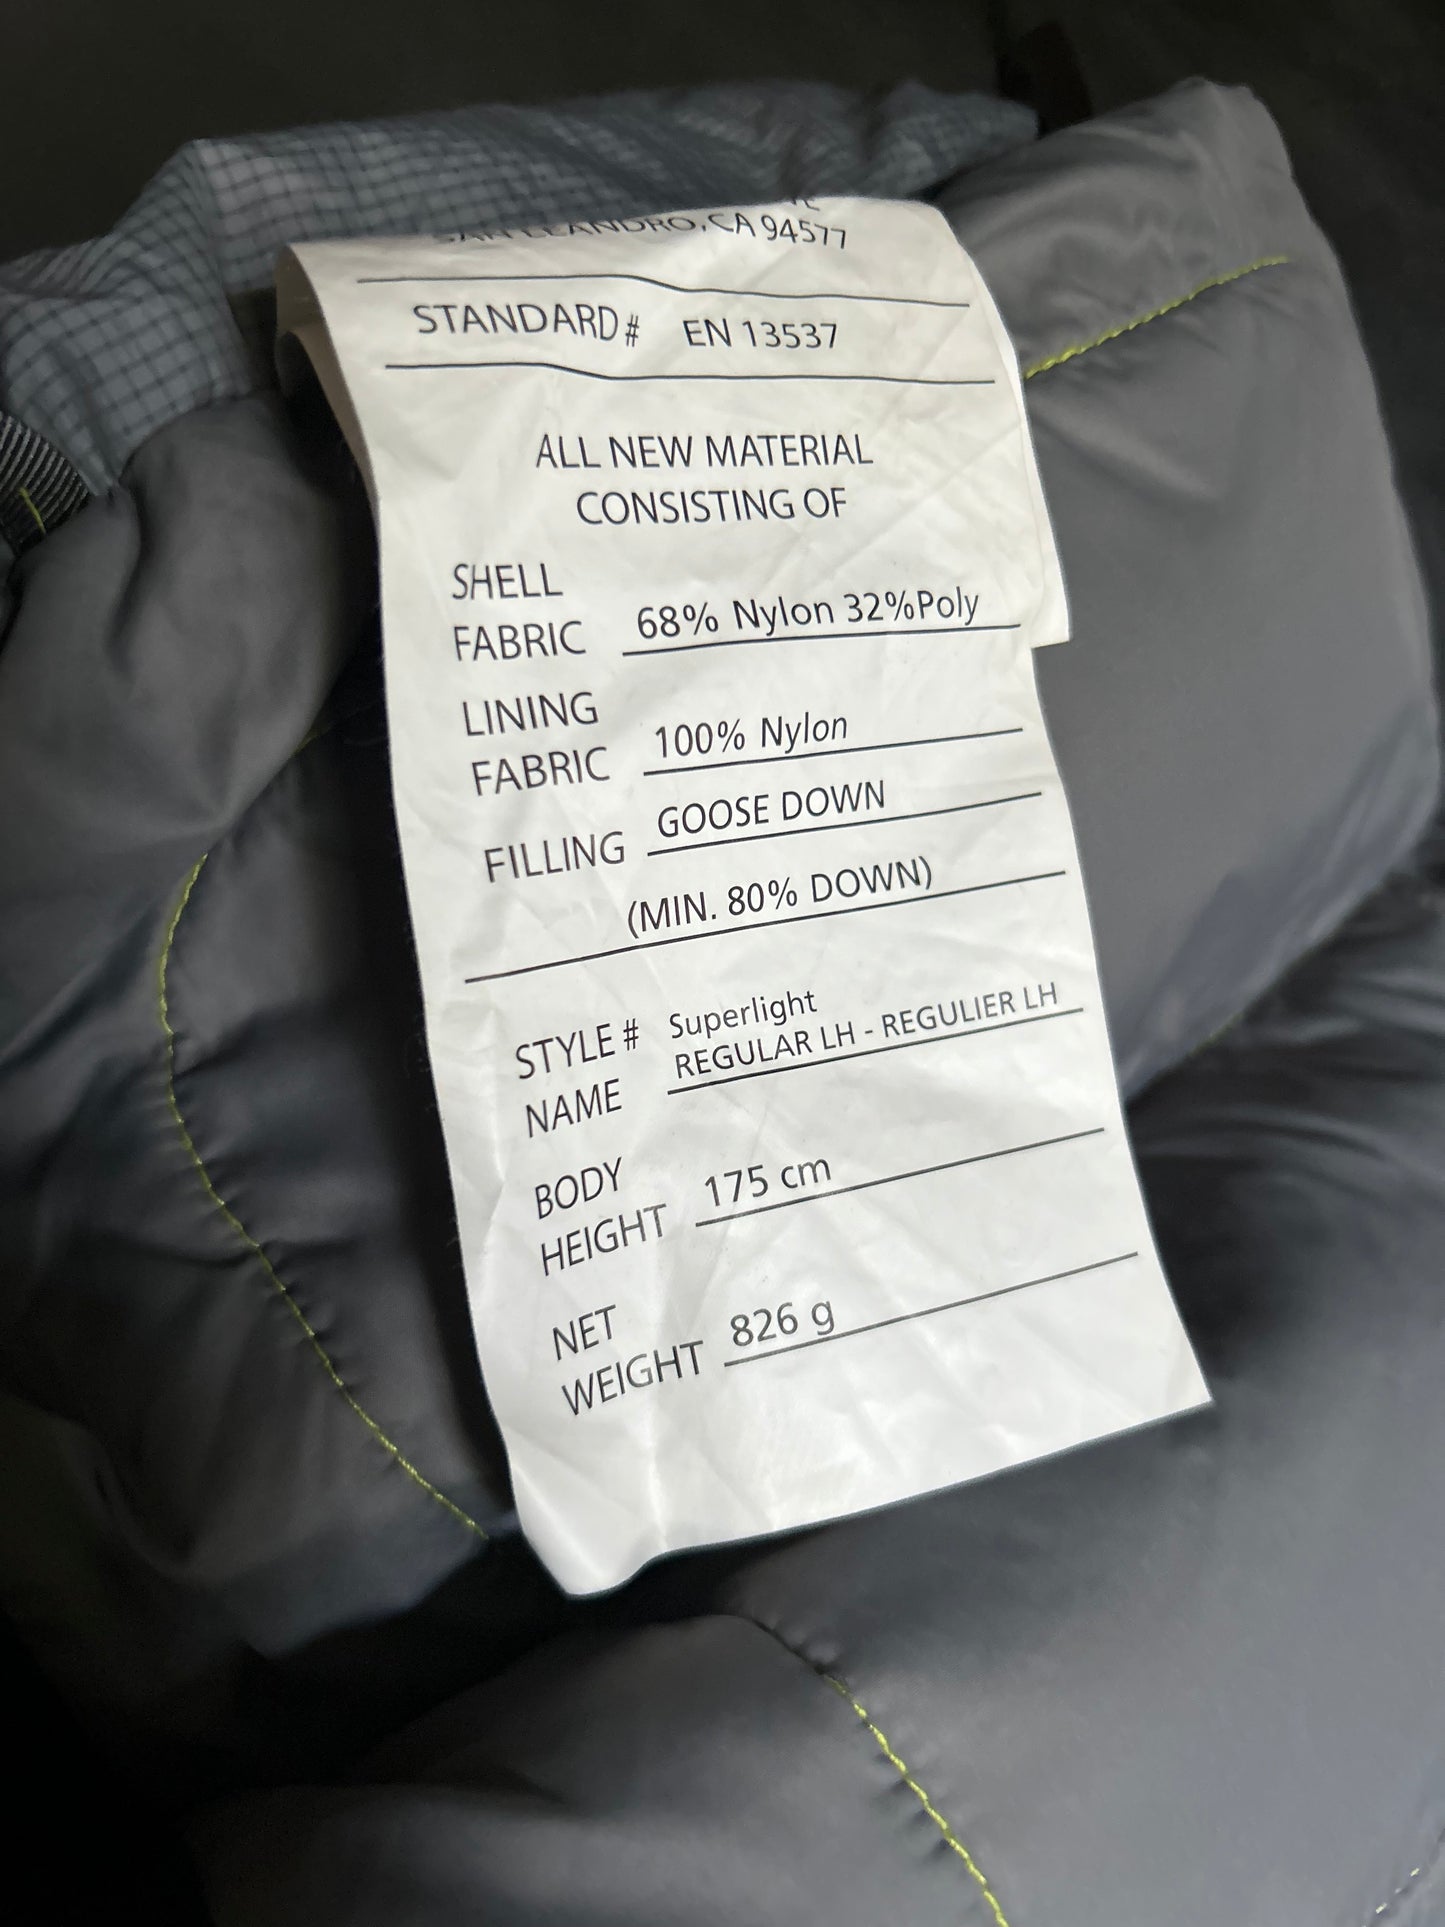 SAN LEANDRO, CA 94577
STANDARD# EN 13537
ALL NEW MATERIAL
CONSISTING OF
SHELL
FABRIC 68% Nylon 32%Poly
LINING
FABRIC 100% Nylon
FILLING GOOSE DOWN
(MIN. 80% DOWN)
STYLE # Superlight
NAME REGULAR LH - REGULIER LH
BODY
HEIGHT 175 cm
NET
WEIGHT 826 g